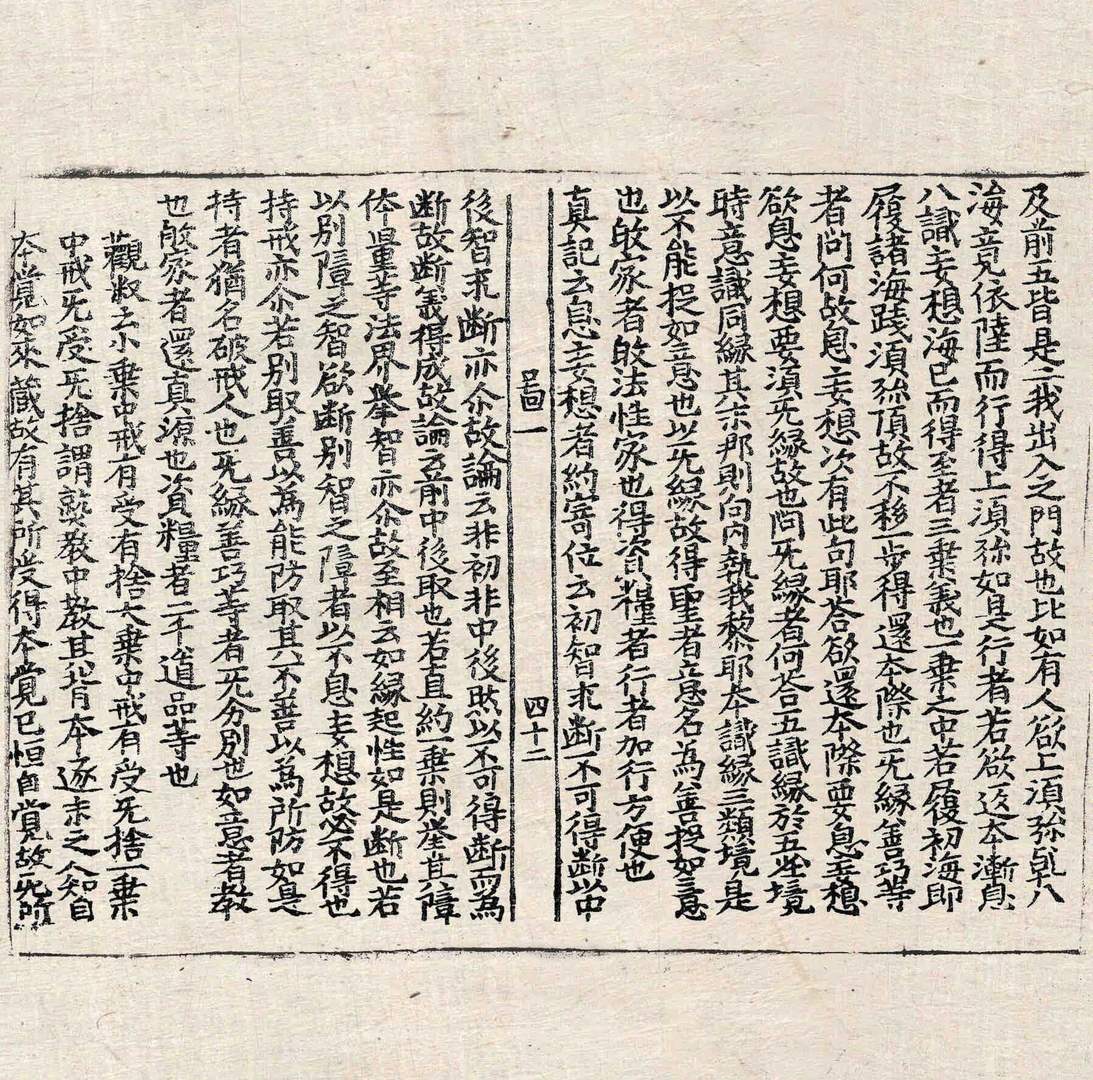 及前五皆是二我出入之門故也比如有人欲上湏弥乹八
海竟依陸而行得上湏弥如是行者若欲返本漸息
八識妄想海已而得至者三乗義也一乗之中若履初海即
履諸海践湏弥頂故不移一步得還本際也无縁善巧等
者問何故息妄想次有此句耶荅欲還本際要息妄想
欲息妄想要湏无縁故也問无縁者何荅五識縁於五塵境
時意識同縁其末那則向内執我黎耶本識縁三類境是
以不能捉如意也以无縁故得聖者意名為善捉如意
也故家者故法性家也得資糧者行者加行方便也
真記云息妄想者約寄位云初智求断不可得断以中
啚一 四十二
後智求断亦尒故論云非初非中後㷼以不可得断而為
断故断義得成故論云前中後取也若直約一乗則崖其障
体量等法界举智亦尒故至相云如縁起性如是断也若
以别障之智欲断别智之障者以不息妄想故必不得也
持戒亦尒若别取善以為能防取其不善以為所防如是
持者猶名破戒人也无縁善巧等者无分别也如意者教
也故家者還真源也資糧者二千道品等也
觀叔云小乗中戒有受有捨大乗中戒有受无捨一乗
中戒无受无捨謂熟教中教其背本逐末之人知自
本覚如来藏故有其所受得本覚已恒自覚故无所